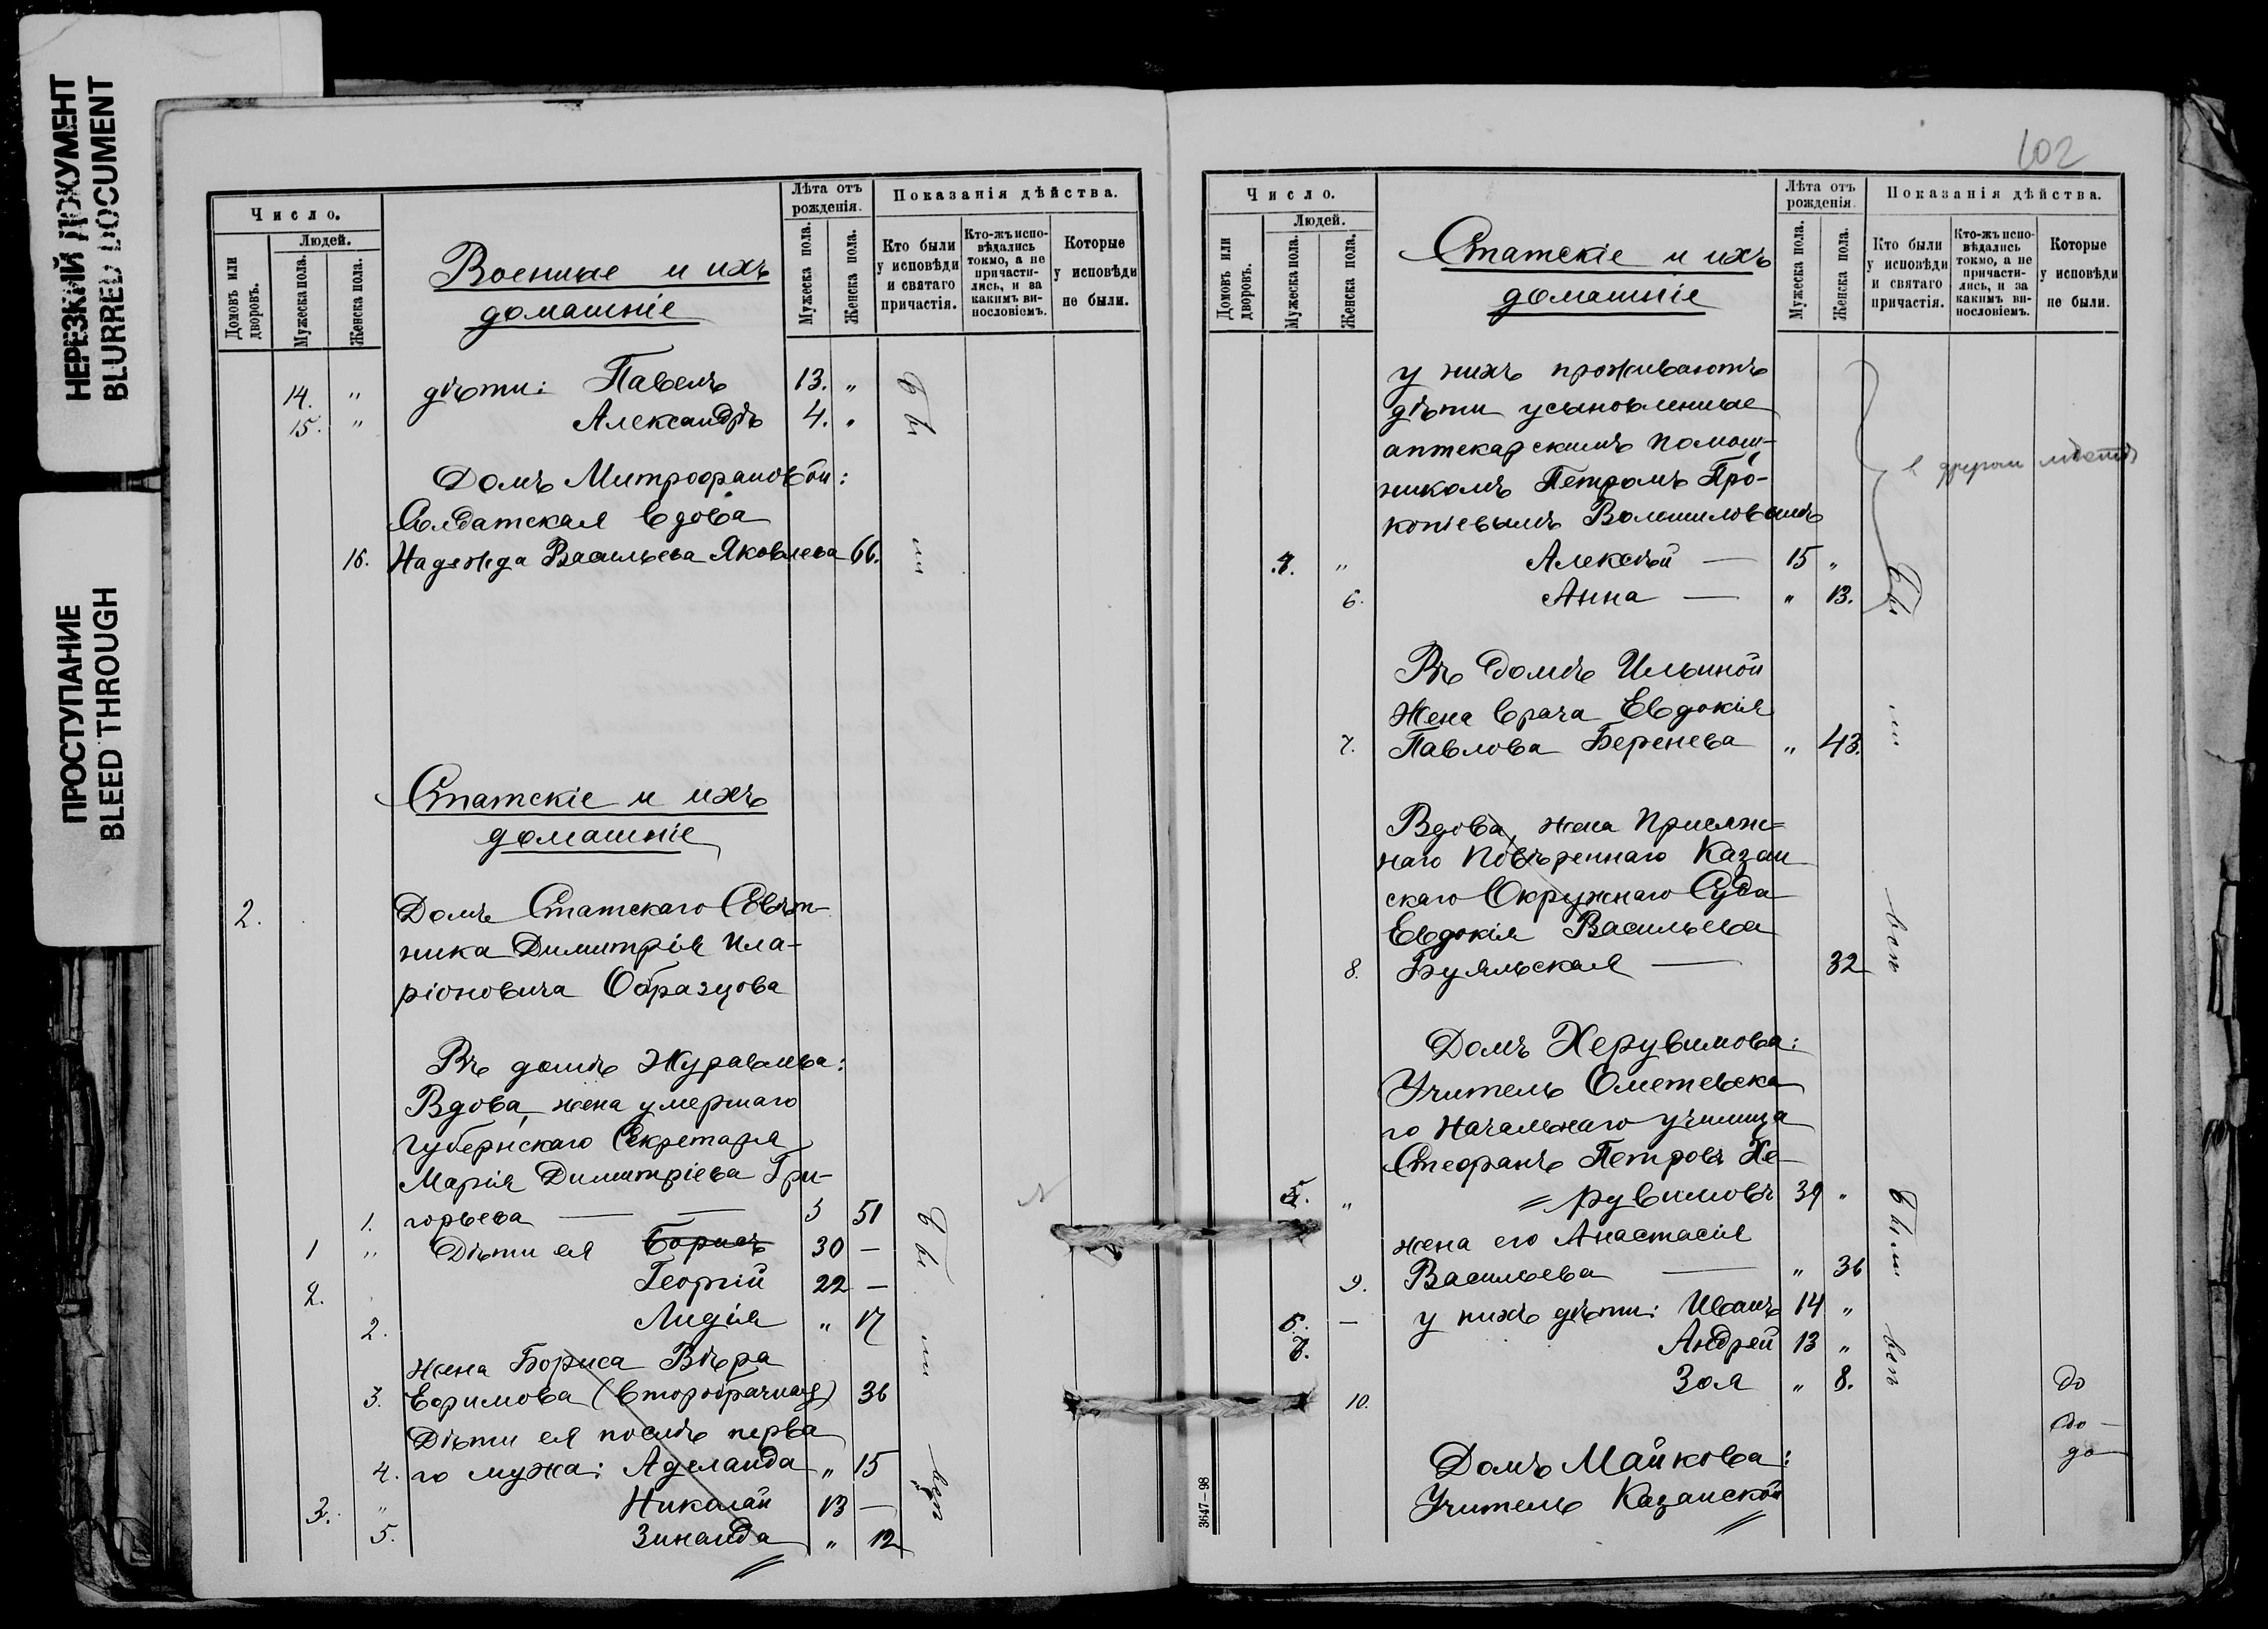 НЕРЕЗКИЙ ДОКУМЕНТ
BLURRED DOCUMENT
ПРОСТУПАНИЕ
BLEED THROUGH
Число.
Домовъ или дворовъ.
Людей.
Мужеска пола.
Женска пола.
Военные и ихъ
домашніе
Лѣта отъ рожденія.
Мужеска пола.
Женска пола.
Показанія дѣйства.
Кто были у исповѣди и святаго причастія.
Кто-жъ испо-вѣдались токмо, а не причасти-лись, и за какимъ ви-нословіемъ.
Которые у исповѣди не были.
14. " дѣти: Павелъ 13. "
15. " Александръ 4. "
Домъ Митрофановой:
Солдатская вдова
16. Надежда Васильева Яковлева 66.
Статскіе и ихъ
домашніе
2. Домъ Статскаго Совѣт-
ника Димитрія Ила-
ріоновича Образцова
Въ домѣ Журавлева:
Вдова, жена умершаго
Губернскаго Секретаря
Марія Димитріева Гри-
1. горьева — — 51
1 " Дѣти ея Борисъ 30 —
2. Георгій 22 —
2. Лидія " 17
жена Бориса Вѣра
3. Ефимова (второбрачная) 36
Дѣти ея послѣ перва
4. го мужа: Аделаида " 15
3. " Николай 13 —
5. Зинаида " 12
Бы
ли
вси
102
Число.
Домовъ или дворовъ.
Людей.
Мужеска пола.
Женска пола.
Статскіе и ихъ
домашніе
Лѣта отъ рожденія.
Мужеска пола.
Женска пола.
Показанія дѣйства.
Кто были у исповѣди и святаго причастія.
Кто-жъ испо-вѣдались токмо, а не причасти-лись, и за какимъ ви-нословіемъ.
Которые у исповѣди не были.
у нихъ проживаютъ
дѣти усыновленные
аптекарскимъ помощ-
никомъ Петромъ Про-
копіевымъ Волошиловымъ
в другом мѣстѣ
4. " Алексѣй — 15 "
6. Анна — " 13.
Въ домѣ Ильиной
Жена врача Евдокія
7. Павлова Беренева " 43.
Вдова, жена Присяж=
наго Повѣреннаго Казан
скаго Окружнаго Суда
Евдокія Васильева
8. Буяльская — 32
Домъ Херувимова:
Учитель Ометевска
го Начальнаго училища
Стефанъ Петровъ Хе-
5. " =рувимовъ 39 "
жена его Анастасія
9. Васильева — " 36
6. — у нихъ дѣти: Иванъ 14 "
7. Андрей 13 "
10. Зоя " 8.
Были
вси
до
до —
до
Домъ Майкова:
Учитель Казанской
3647—98